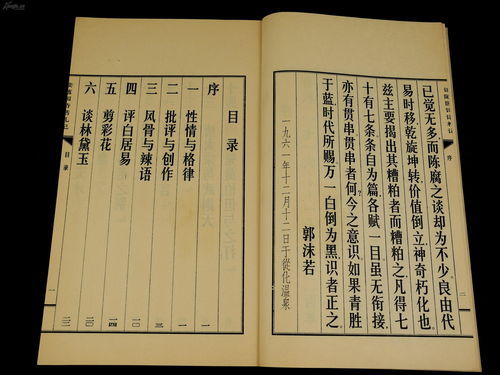 序
二
已觉无多而陈腐之谈却为不少良由代
易时移乾旋坤转价值倒立神奇朽化也
兹主要揭出其糟粕者而糟粕之凡得七
十有七条条自为篇各赋一目虽无衔接
亦有贯串贯串者何今之意识如果青胜
于蓝时代所赐万一白倒为黑识者正之
郭沫若
一九六一年十二月十二日于從化温泉
目录
序 一
一 性情与格律 一
二 批评与创作
三 风骨与辣语
四 评白居易
五 剪彩花
六 谈林黛玉
目录
一